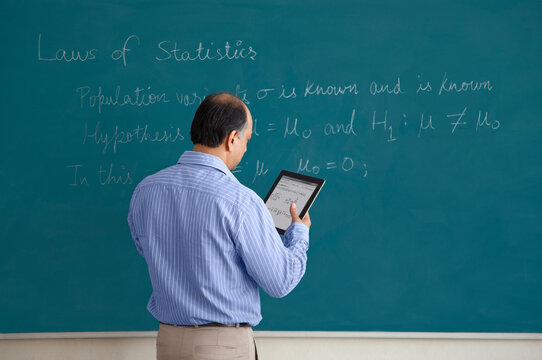 Laws of Statistics
Population σ is known and is known
Hypothesis = μ₀ and H₁ : μ ≠ μ₀
In this μ μ₀ = 0 ;